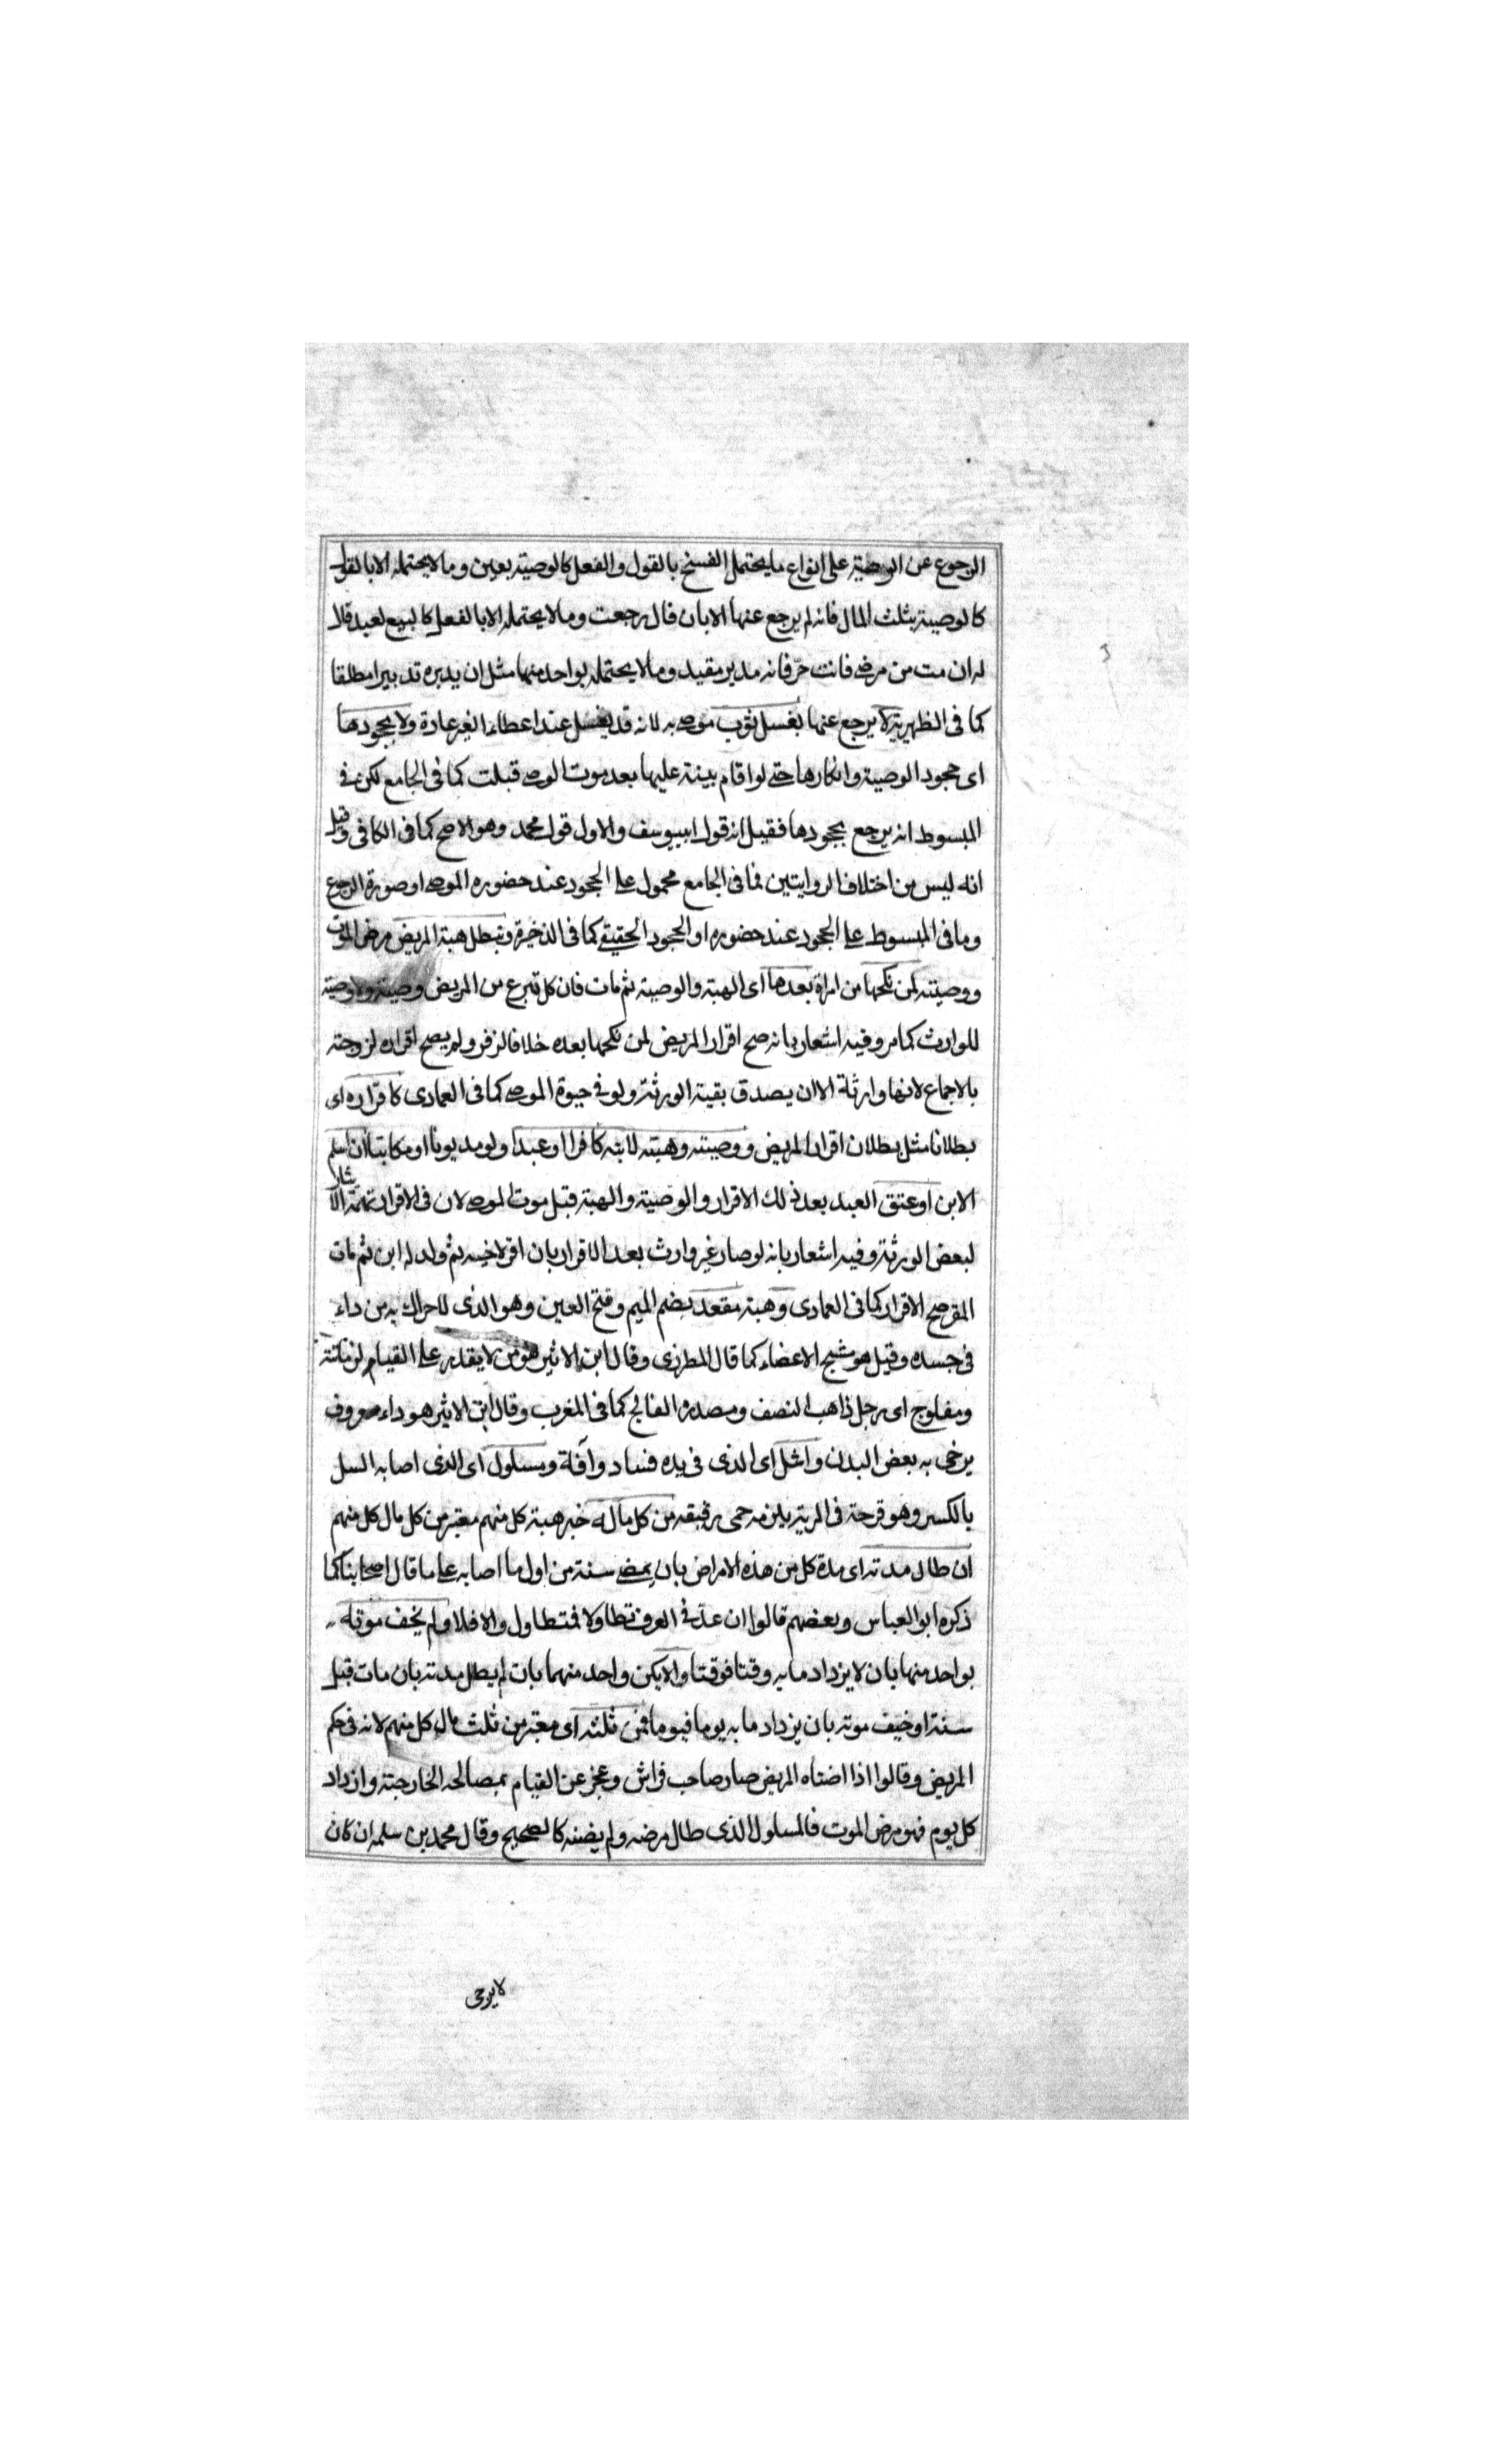 الرجوع عن الوصية على انواع ما يحتمل الفسخ بالقول والفعل كالوصية بعين وما لا يحتمله الا بالقول
كالوصية بثلث المال فانه لم يرجع عنها الا بان قال رجعت وما لا يحتمله الا بالفعل كالبيع لعبد قال
له ان مت من مرضى فانت حرّ فانه مدبر مقيد وما لا يحتمله بواحد منهما مثل ان يدبره تدبيرا مطلقا
كما فى الظهيرية لا يرجع عنها بغسل ثوب موصى به لانه قد يغسل عند اعطاء الغير عادة ولا بجحودها
اى جحود الوصية وانكارها حتى لو اقام بينة عليها بعد موت الموصى قبلت كما فى الجامع لكن فى
المبسوط انه يرجع بجحودها فقيل انه قول ابييوسف والاول قول محمد وهو الاصح كما فى الكافى وقيل
انه ليس من اختلاف الروايتين فما فى الجامع محمول على الجحود عند حضوره الموصى او صورة الرجوع
وما فى المبسوط على الجحود عند حضوره او الجحود الحقيقى كما فى الذخيرة وتبطل هبة المريض مرض الموت
ووصيته لمن نكحها من امراة بعدها اى الهبة والوصية ثم مات فان كل تبرع من المريض وصية ولا وصية
للوارث كما مر وفيه اشعار بانه صح اقرار المريض لمن نكحها بعده خلافا لزفر ولم يصح اقراره لزوجته
بالاجماع لانها وارثة الا ان يصدق بقية الورثة ولو فى حيوة الموصى كما فى العمادى كاقراره اى
بطلانا مثل بطلان اقرار المريض ووصيته وهبته لابنه كافرا او عبدا ولو مديونا او مكاتبا ان اسلم
الابن او عتق العبد بعد ذلك الاقرار والوصية والهبة قبل موت الموصى لان فى الاقرار تهمة الايثار
لبعض الورثة وفيه اشعار بانه لو صار غير وارث بعد الاقرار بان اقر لاخيه ثم ولد له ابن ثم مات
المقر صح الاقرار كما فى العمادى وهبة مقعد بضم الميم وفتح العين وهو الذى لا حراك به من داء
فى جسده وقيل هو متشنج الاعضاء كما قال المطرزى وقال ابن الاثير هو من لا يقدر على القيام لزمانته
ومفلوج اى رجل ذاهب النصف ومصدره الفالج كما فى المغرب وقال ابن الاثير هو داء معروف
يرخى به بعض البدن واشل اى الذى فى يده فساد وآفة ومسلول اى الذى اصابه السل
بالكسر وهو قرحة فى الرية يلزمه حمى رقيقه من كل ماله خبر هبة كل منهم معتبر من كل مال كل منهم
ان طال مدته اى مدة كل من هذه الامراض بان يمضى سنة من اول ما اصابه على ما قال اصحابنا كما
ذكره ابو العباس وبعضهم قالوا ان عدّ فى العرف تطاولا فمتطاول والا فلا ولم يخف موته
بواحد منها بان لا يزداد ما به وقتا فوقتا والا يكن واحد منهما بان لم يطل مدته بان مات قبل
سنة او خيف موته بان يزداد ما به يوما فيوما فمن ثلثه اى معتبر من ثلث مال كل منهم لانه فى حكم
المريض وقالوا اذا اضناه المريض صار صاحب فراش وعجز عن القيام بمصالحه الخارجة وازداد
كل يوم فهو مرض الموت فالمسلول الذى طال مرضه ولم يضنه كالصحيح وقال محمد بن سلمه ان كان
لا يرجى